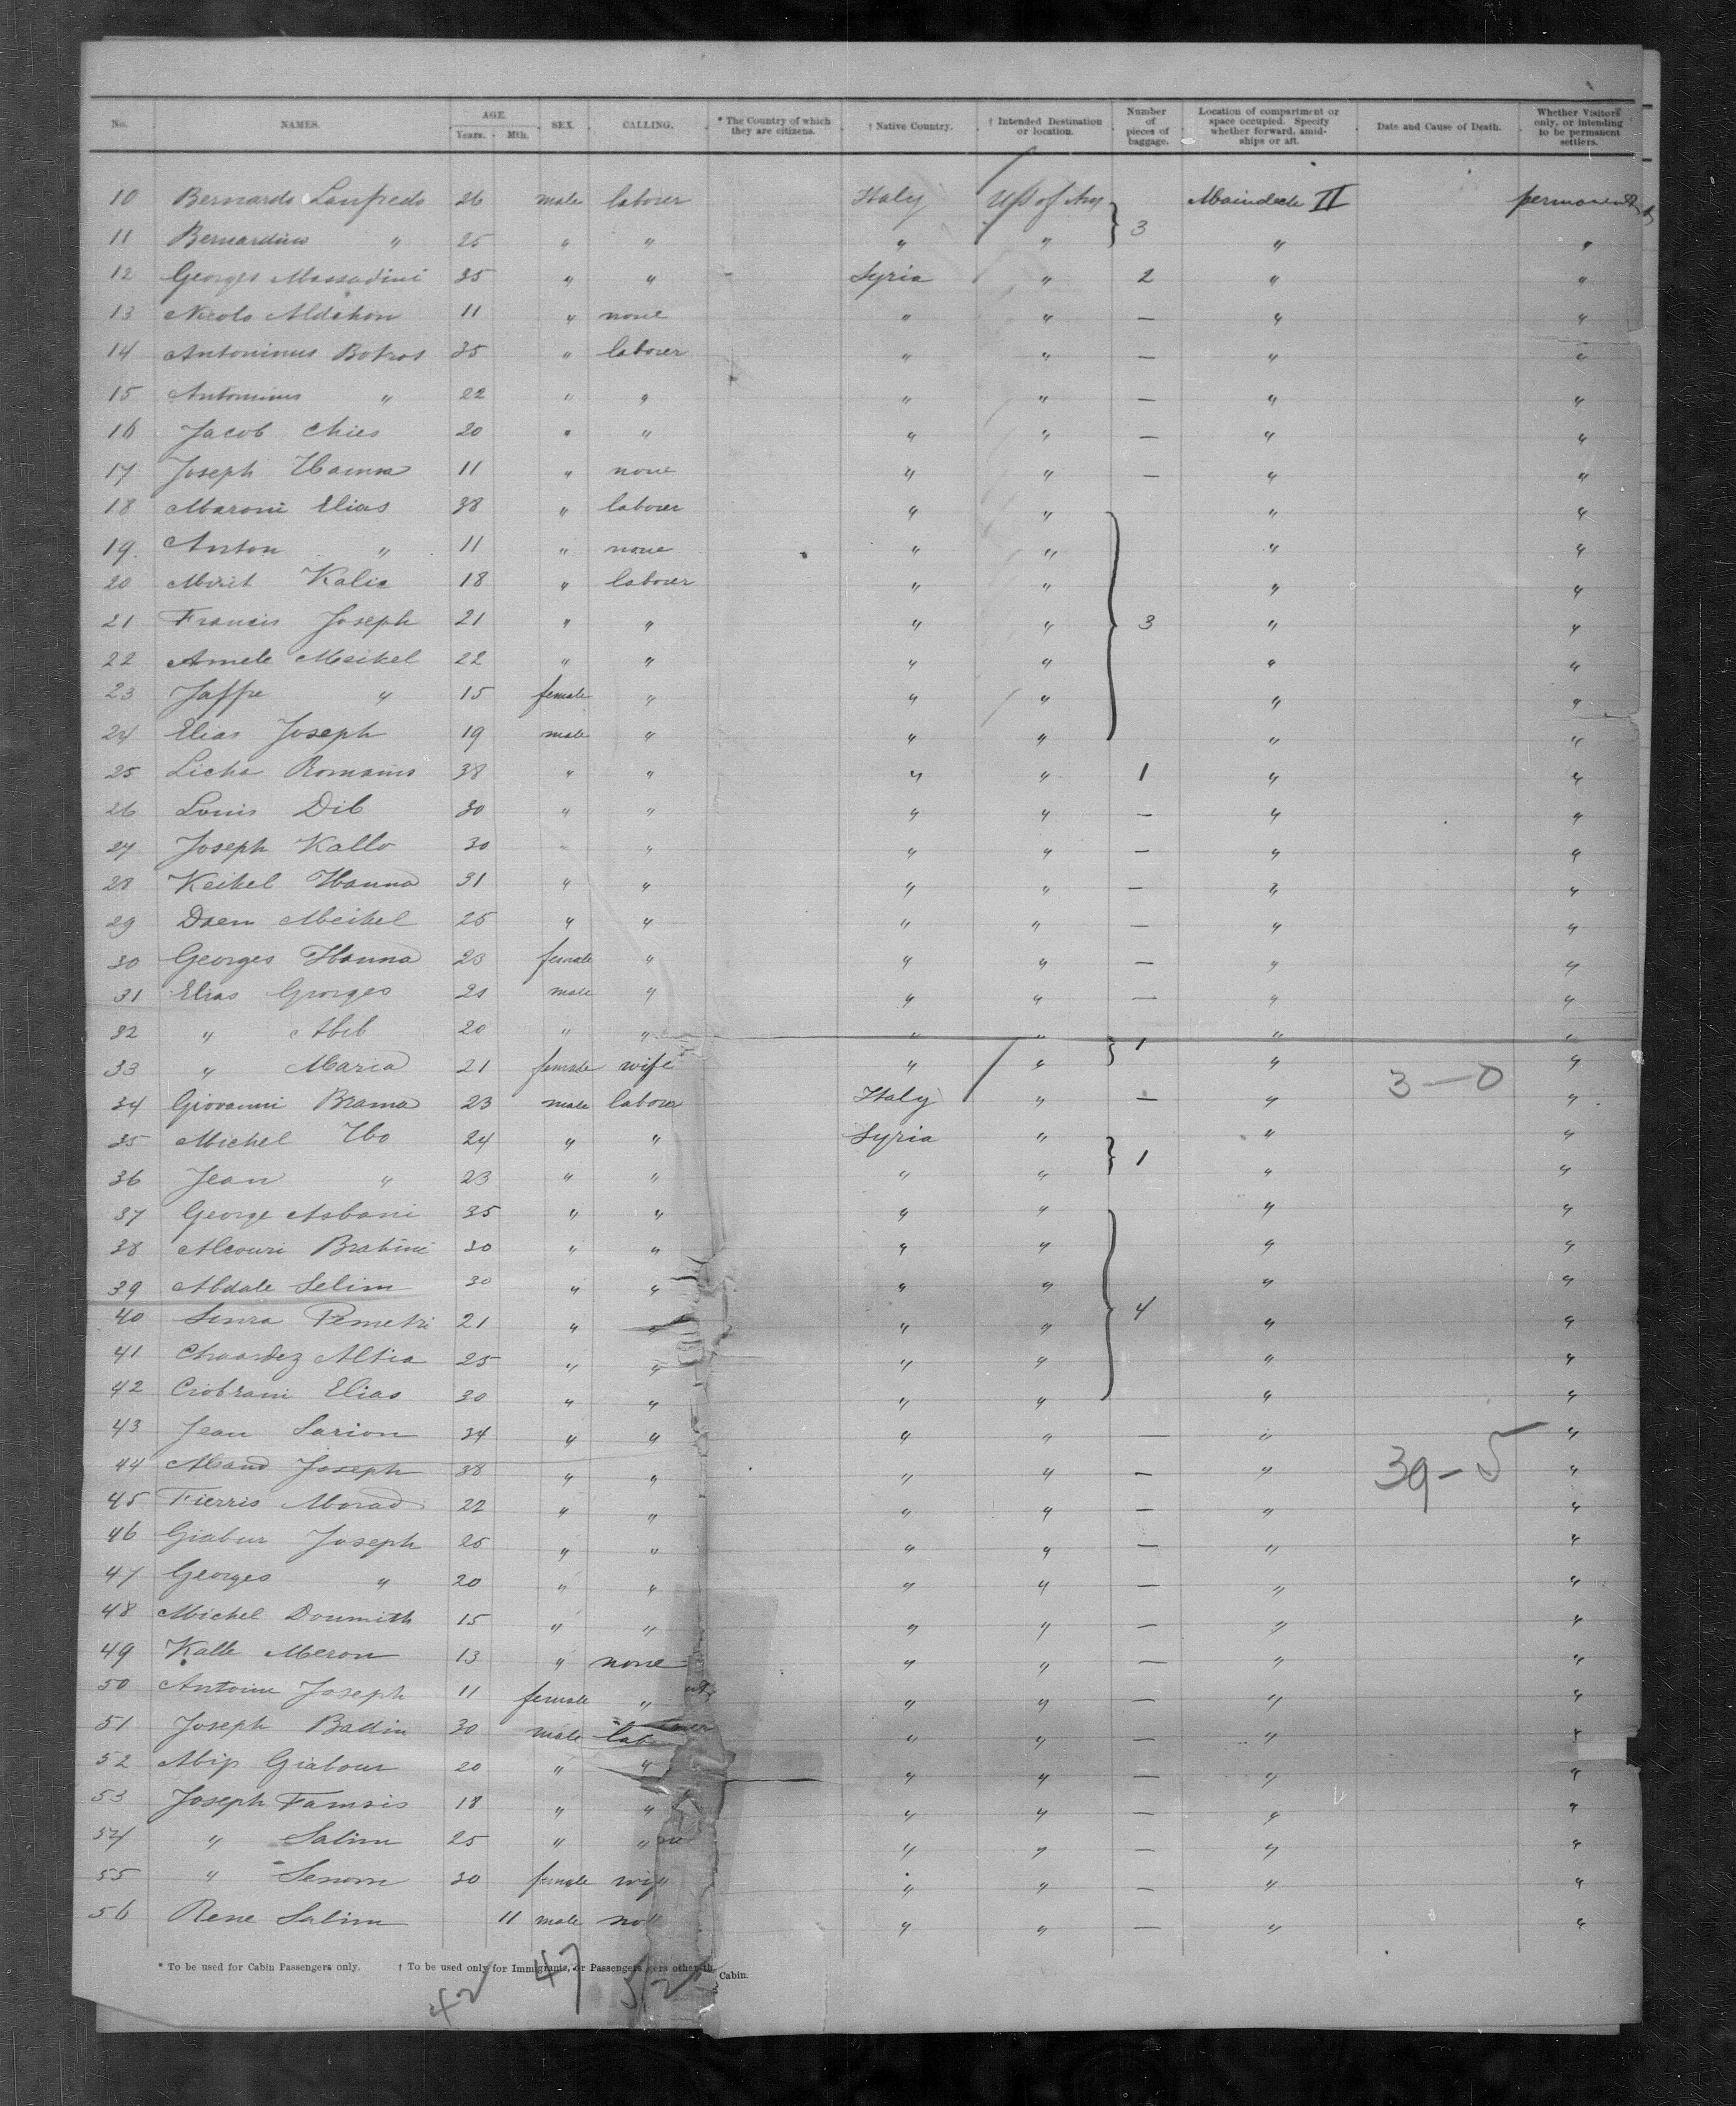 No. NAMES. AGE. Years. Mth. SEX. CALLING. * The Country of which they are citizens. † Native Country. † Intended Destination or location. Number of pieces of baggage. Location of compartment or space occupied. Specify whether forward, amidships or aft. Date and Cause of Death. Whether Visitors only, or intending to be permanent settlers.
10 Bernardo Lanfredo 26 male laborer Italy US of Am Maindeck II permanent
11 Bernardino " 25 " " " " 3 " "
12 Georges Massadini 35 " " Syria " 2 " "
13 Nicolo Aldahon 11 " none " " — " "
14 Antoninus Botros 35 " laborer " " — " "
15 Antoninus " 22 " " " " — " "
16 Jacob Chies 20 " " " " — " "
17 Joseph Hanna 11 " none " " — " "
18 Maroni Elias 38 " laborer " " " "
19. Anton " 11 " none " " " "
20 Mirit Kalic 18 " laborer " " " "
21 Francis Joseph 21 " " " " 3 " "
22 Amele Meikel 22 " " " " " "
23 Jaffre " 15 female " " " " "
24 Elias Joseph 19 male " " " " "
25 Licha Romanis 38 " " " " 1 " "
26 Louis Dib 30 " " " " — " "
27 Joseph Kallo 30 " " " " — " "
28 Keikel Hanna 31 " " " " — " "
29 Daen Meikel 25 " " " " — " "
30 Georges Hanna 23 female " " " — " "
31 Elias Gorges 21 male " " " — " "
32 " Abib 20 " " " " " "
33 " Maria 21 female wife " " 1 " 3 — 0 "
34 Giovanni Brama 23 male labore Italy " — " "
35 Michel Ibo 24 " " Syria " " "
36 Jean " 23 " " " " 1 " "
37 George Asbani 35 " " " " " "
38 Alcouri Brahini 30 " " " " " "
39 Abdale Selim 30 " " " " " "
40 Senra Pemetri 21 " " " " 4 " "
41 Altia 25 " " " " " "
42 Ciobrani Elias 30 " " " " " "
43 Jean Sarion 34 " " " " — " "
44 Joseph 38 " " " " — " 39 - 5 "
45 Fierris Morad 22 " " " " — " "
46 Giabur Joseph 25 " " " " — " "
47 Georges " 20 " " " " — " "
48 Michel Doumith 15 " " " " — " "
49 Kalle Meron 13 " none " " — " "
50 Antoine Joseph 11 female " " " — " "
51 Joseph Badin 30 male lab " " — " "
52 Abip Giabour 20 " " " " — " "
53 Joseph Famsis 18 " " " " — " "
54 " Salim 25 " " " " — " "
55 " Senom 30 female wif " " — " "
56 Rene Salim 11 male no " " — " "
* To be used for Cabin Passengers only. † To be used only for Immigrants, or Passengers other th Cabin.
42 47 52